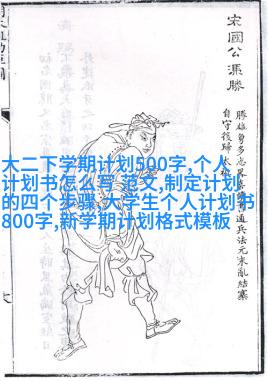 宋國公馮勝
勝雄勇多志畧
通兵法元末亂結寨
自守後歸太祖
大二下学期计划500字,个人
计划书怎么写 范文,制定计划
的四个步骤,大学生个人计划书
800字,新学期计划格式模板